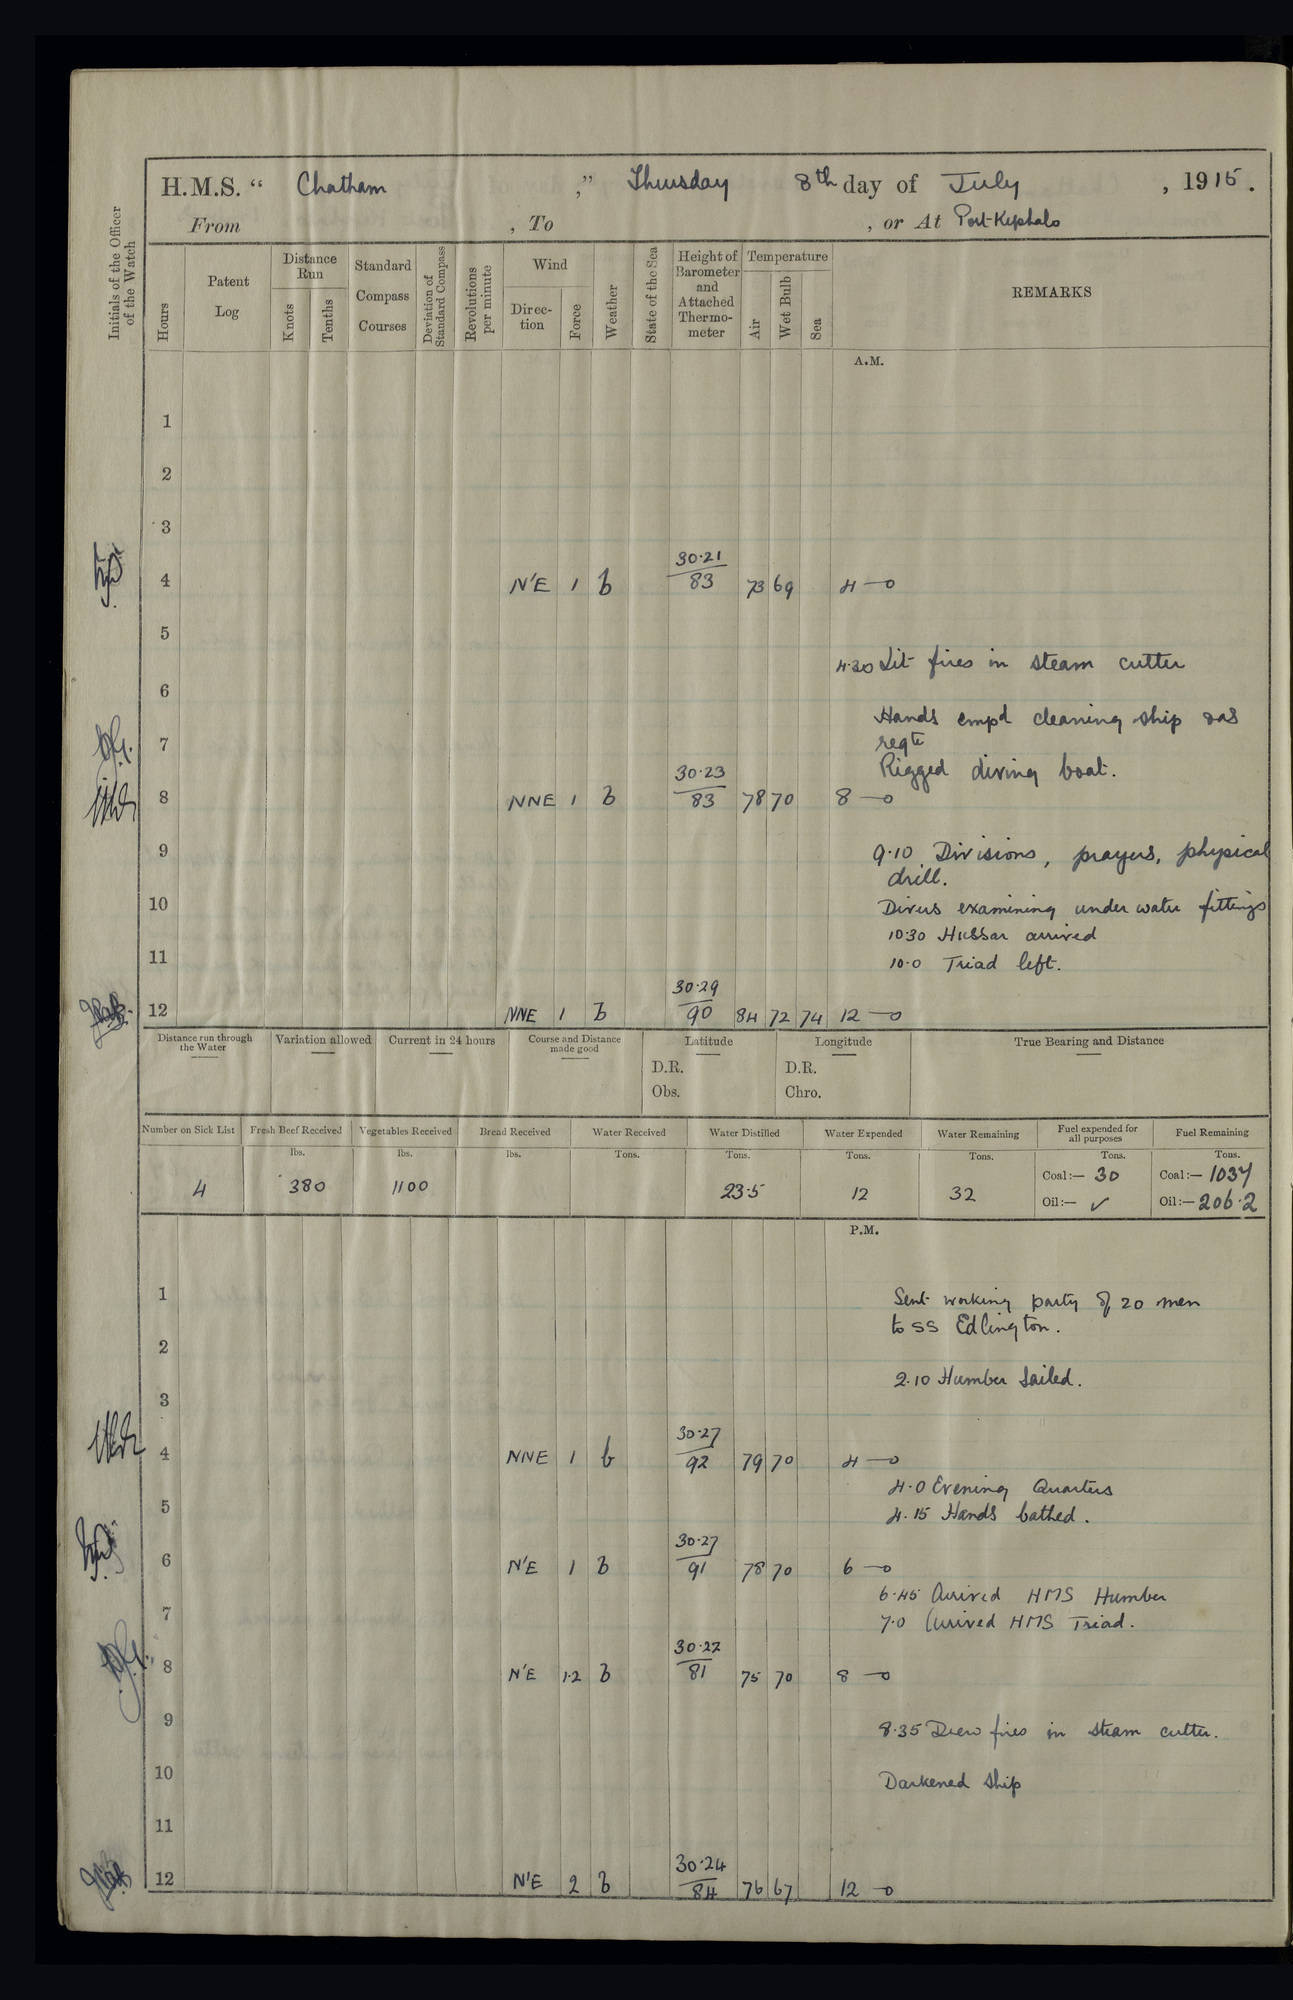 H.M.S. “ Chatham ,” Thursday 8th day of July , 1915 .
From , To , or At Port-Kephalo
Initials of the Officer of the Watch
Hours
Patent Log
Distance Run
Knots
Tenths
Standard Compass Courses
Deviation of Standard Compass
Revolutions per minute
Wind
Direc-tion
Force
Weather
State of the Sea
Height of Barometer and Attached Thermo-meter
Temperature
Air
Wet Bulb
Sea
REMARKS
A.M.
1
2
3
4 N'E 1 b 30·21/83 73 69 4 —o
5
4·30 Lit fires in steam cutter
6
Hands empd cleaning ship & as
7 reqte
Rigged diving boat.
8 NNE 1 b 30·23/83 78 70 8 —o
9 9·10 Divisions, prayers, physical
drill.
10 Divers examining under water fittings
10·30 Hussar arrived
11 10·0 Triad left.
12 NNE 1 b 30·29/90 84 72 74 12 —o
Distance run through the Water
Variation allowed
Current in 24 hours
Course and Distance made good
Latitude
D.R.
Obs.
Longitude
D.R.
Chro.
True Bearing and Distance
Number on Sick List Fresh Beef Received Vegetables Received Bread Received Water Received Water Distilled Water Expended Water Remaining Fuel expended for all purposes Fuel Remaining
lbs. lbs. lbs. Tons. Tons. Tons. Tons. Tons. Tons.
4 380 1100 23·5 12 32 Coal:— 30 Coal:— 1037
Oil:— ✓ Oil:— 206·2
P.M.
1 Sent working party of 20 men
to SS Edlington.
2
2·10 Humber Sailed.
3
4 NNE 1 b 30·27/92 79 70 4 —o
4·0 Evening Quarters
5 4·15 Hands bathed.
6 N'E 1 b 30·27/91 78 70 6 —o
6·45 Arrived HMS Humber
7 7·0 Arrived HMS Triad.
8 N'E 1·2 b 30·22/81 75 70 8 —o
9 8·35 Drew fires in steam cutter.
10 Darkened ship
11
12 N'E 2 b 30·24/84 76 67 12 —o